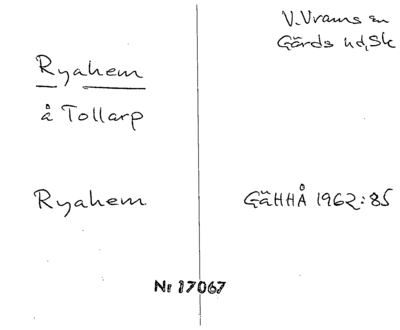 V. Vrams sn
Gärds hd, Sk
Ryahem
å Tollarp
Ryahem
GäHHÅ 1962:85
Nr 17067